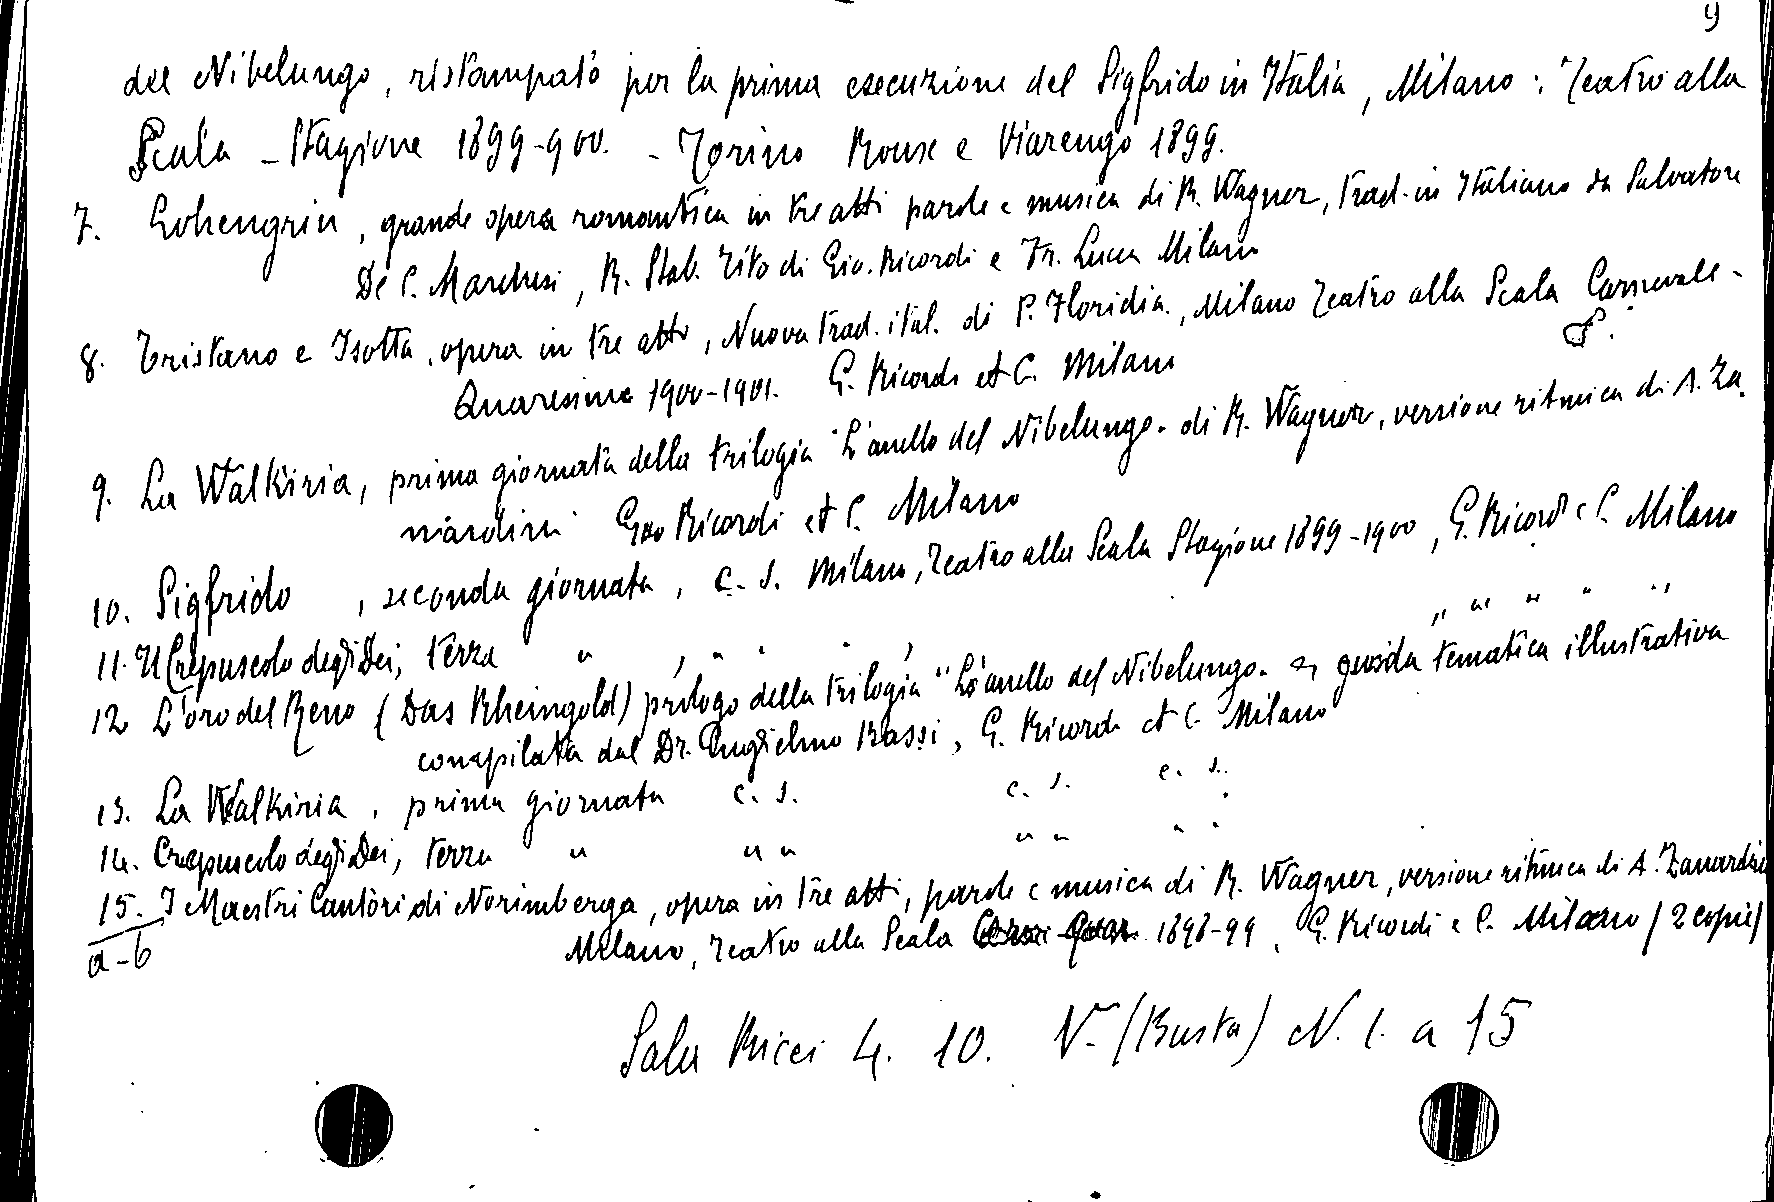 9
del Nibelungo, ristampato per la prima esecuzione del Sigfrido in Italia, Milano: Teatro alla
Scala - Stagione 1899-900. - Torino Roux e Viarengo 1899.
7. Lohengrin, grande opera romantica in tre atti parole e musica di R. Wagner, trad. in Italiano da Salvatore
De C. Marchesi, R. Stab. Tito di Gio. Ricordi e Fr. Lucca Milano
8. Tristano e Isotta, opera in tre atti, Nuova trad. ital. di P. Floridia., Milano Teatro alla Scala Carnevale-
Quaresima 1900-1901. G. Ricordi et C. Milano
9. La Walkiria, prima giornata della trilogia "L'anello del Nibelungo" di R. Wagner, versione ritmica di A. Za-
nardini Gio Ricordi et C. Milano
10. Sigfrido, seconda giornata, c. s. Milano, Teatro alla Scala Stagione 1899-1900, G. Ricordi e C. Milano
11. Il Crepuscolo degli Dei, terza " , " " " , " " " " "
12 L'oro del Reno (Das Rheingold) prologo della trilogia "L'anello del Nibelungo" guida tematica illustrativa
compilata dal Dr. Guglielmo Bassi, G. Ricordi et C. Milano
13. La Walkiria, prima giornata c. s. c. s. c. s.
14. Crepuscolo degli Dei, terza " " " " " " "
15. I Maestri Cantori di Norimberga, opera in tre atti, parole e musica di R. Wagner, versione ritmica di A. Zanardini
a-b Milano, Teatro alla Scala 1898-99, G. Ricordi e C. Milano (2 copie)
Sala Ricci 4. 10. V. (Busta) N. 1. a 15